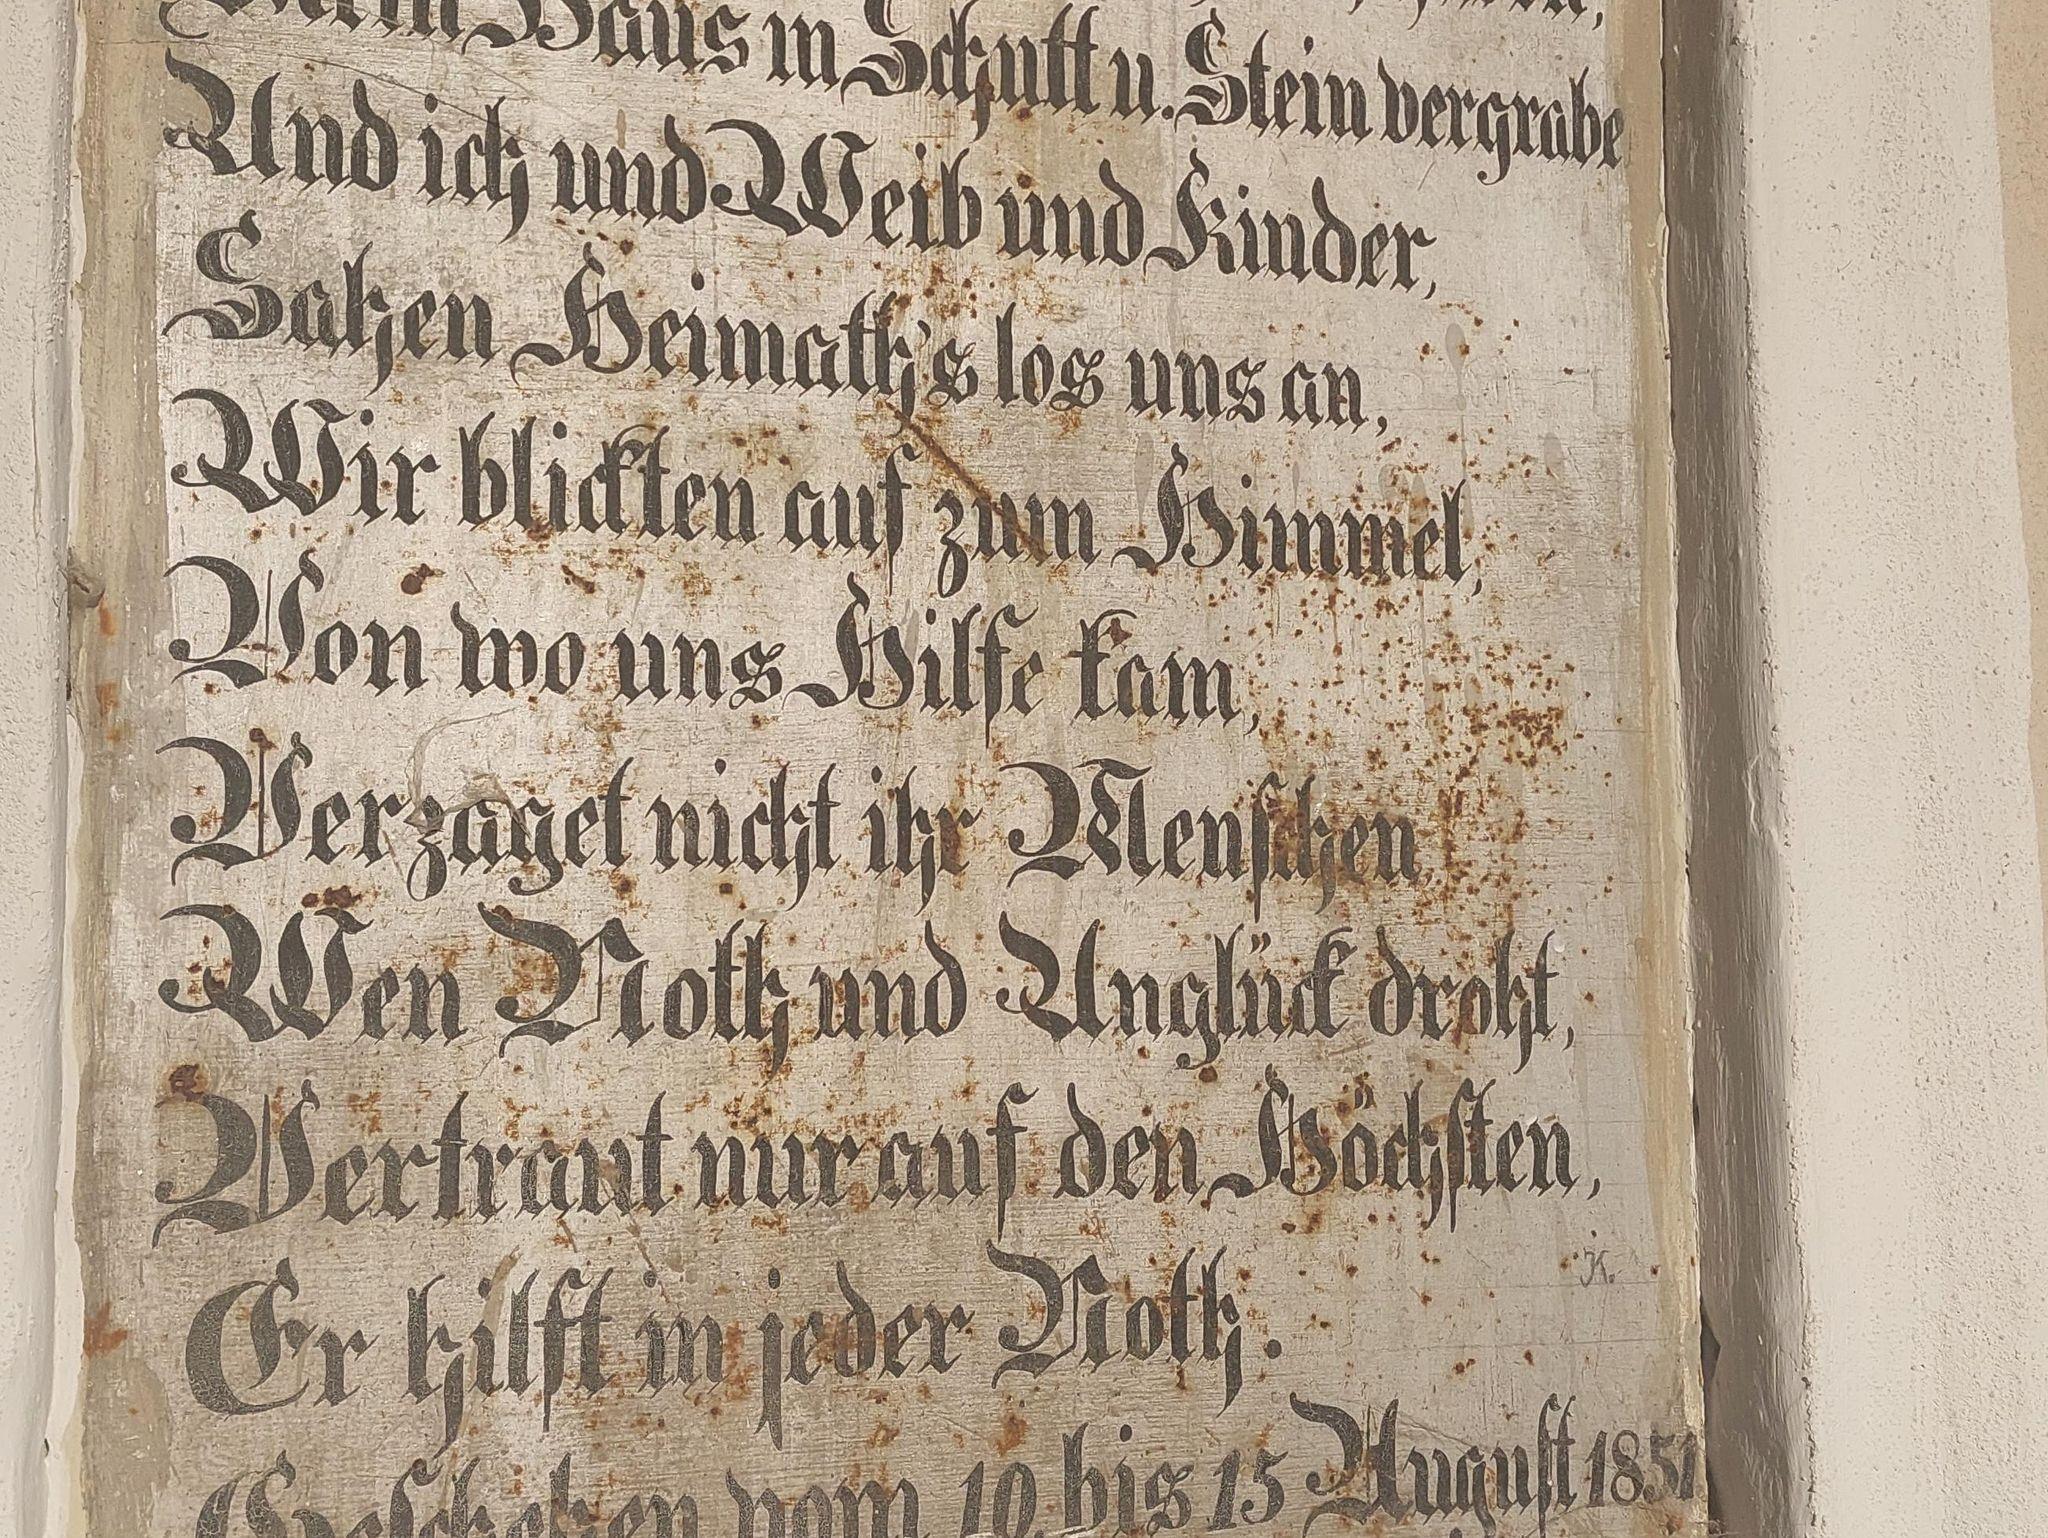 Mein Haus in Schutt u. Stein vergrabe
Und ich und Weib und Kinder,
Sahen Heimath's los uns an,
Wir blickten auf zum Himmel,
Von wo uns Hilfe kam,
Verzaget nicht ihr Menschen,
Wen Noth und Unglück droht,
Vertraut nur auf den Höchsten,
K.
Er hilft in jeder Noth.
Geschehen vom 10. bis 15 August 1851